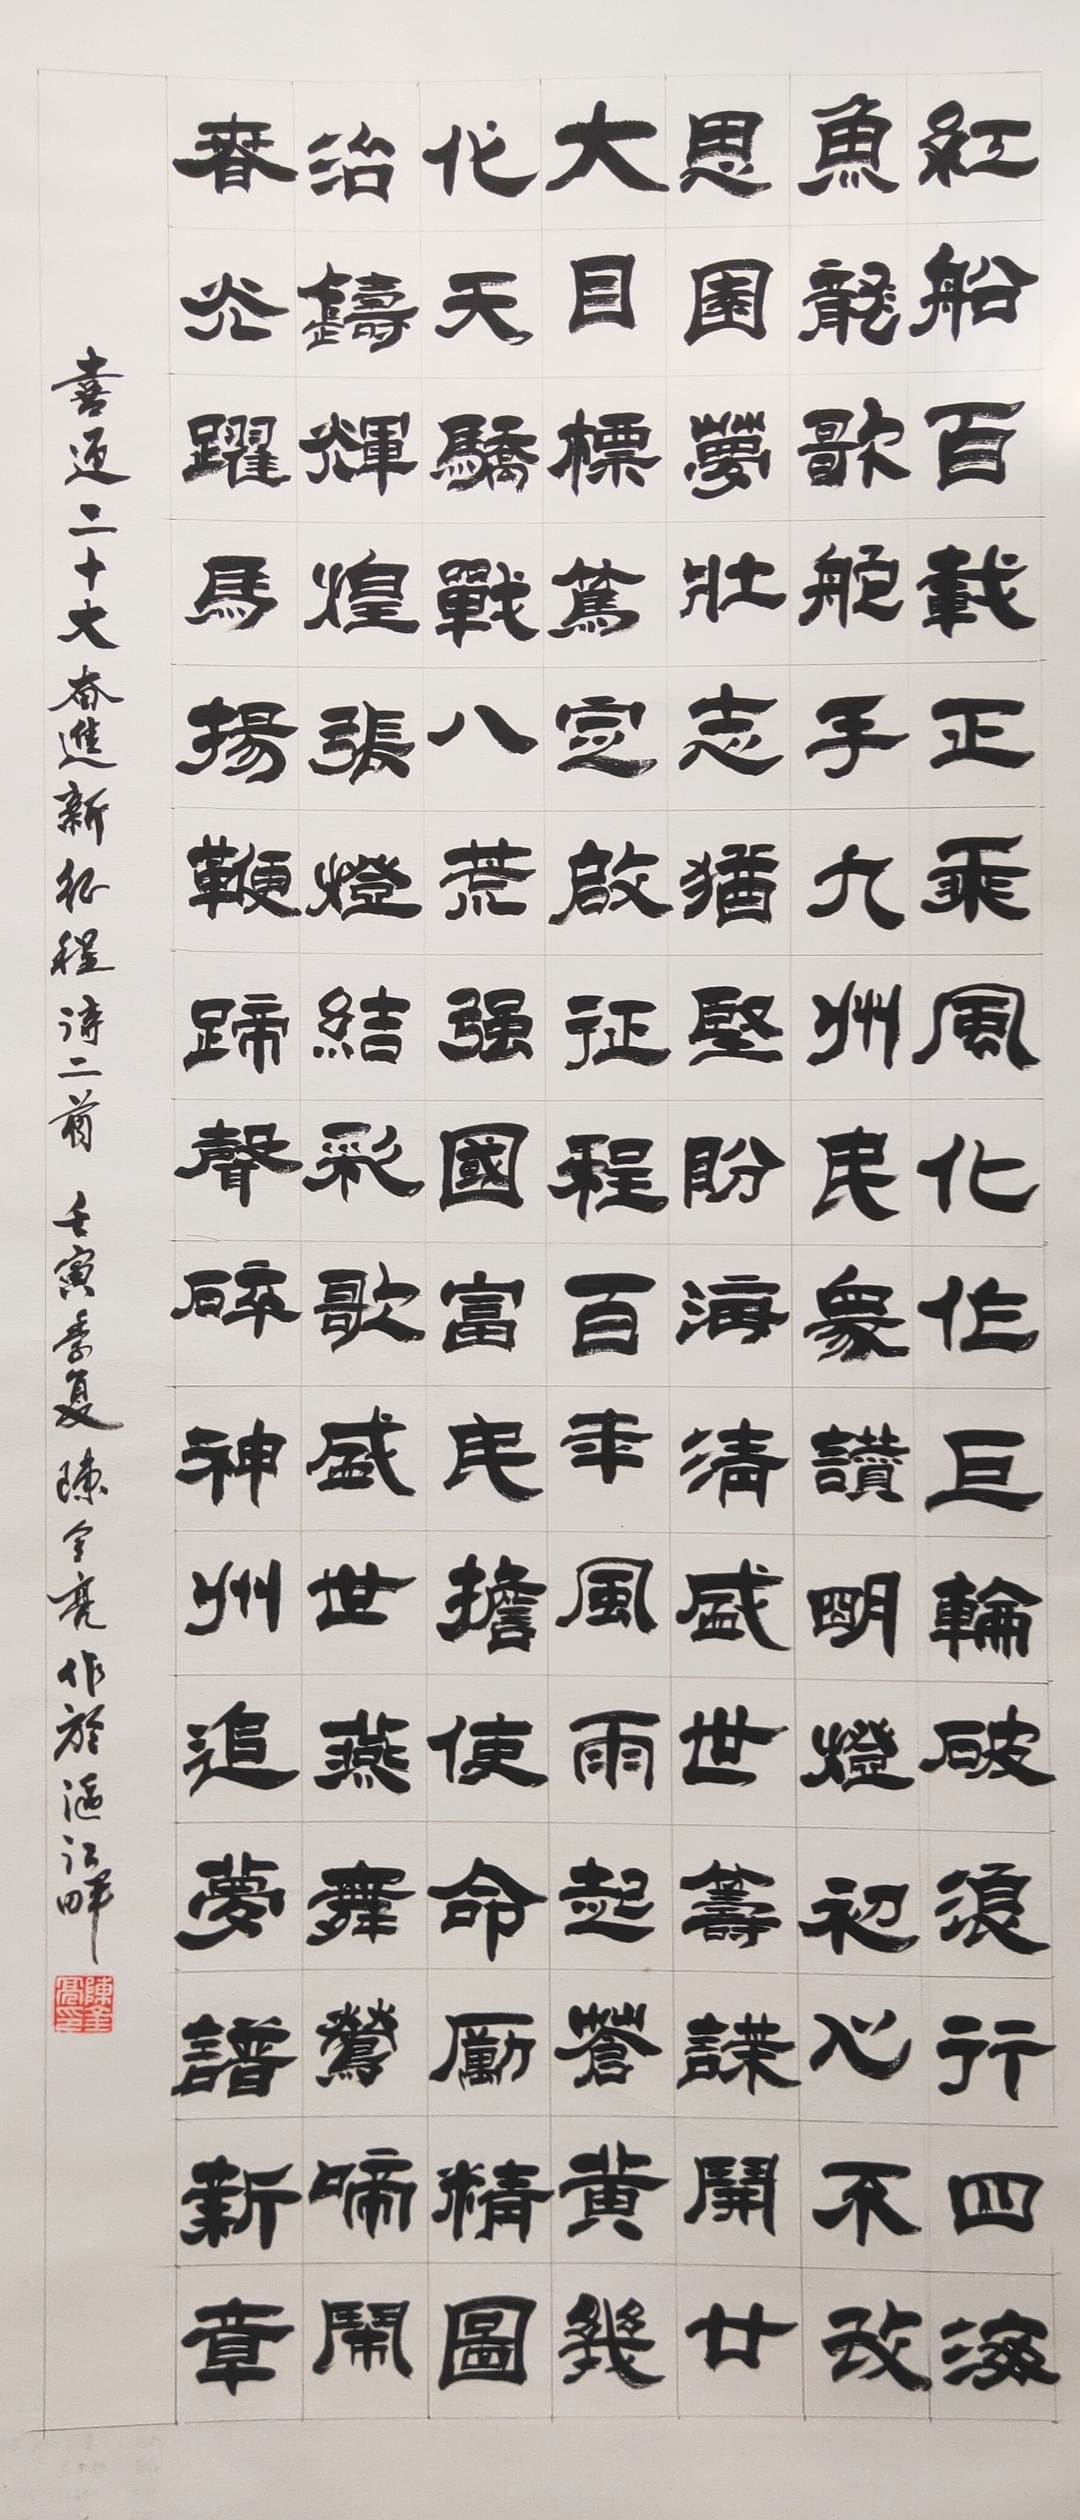 紅船百載正乘風化作巨輪破浪行四海
魚龍歌舵手九州民眾讚明燈初心不改
思圓夢壯志猶堅盼海清盛世籌謀開廿
大目標篤定啟征程百年風雨起蒼黃幾
化天驕戰八荒强國富民擔使命勵精圖
治鑄輝煌張燈結彩歌盛世燕舞鶯啼鬧
春光躍馬揚鞭蹄聲碎神州追夢譜新章
喜迎二十大奋進新征程詩二首 壬寅季夏 陳全亮作於江畔
陳全亮印